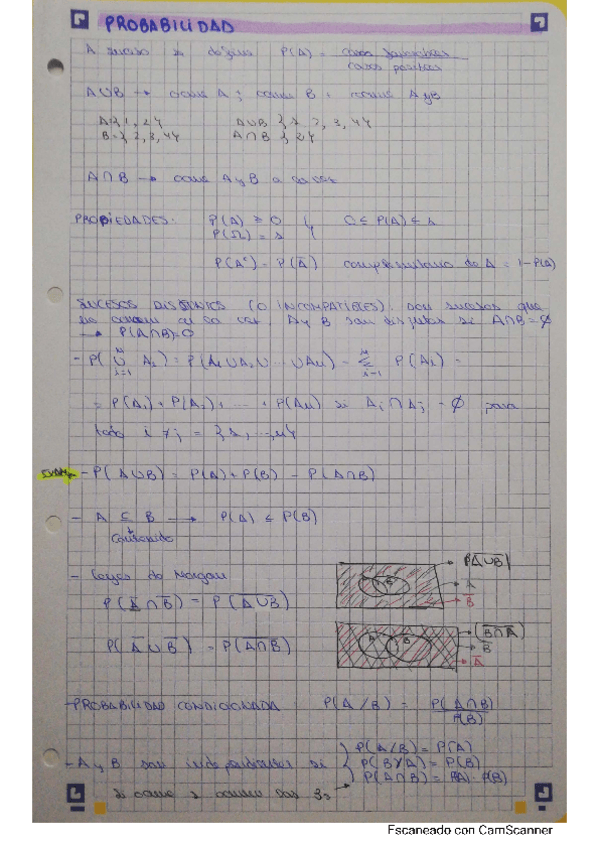 PROBABILIDAD
A suceso se define P(A) = casos favorables
casos posibles
A∪B → ocurre A ; ocurre B ; ocurre A y B
A={1,2} A∪B {1,2,3,4}
B={2,3,4} A∩B {2}
A∩B → ocurre A y B a la vez
PROPIEDADES: P(A) ≥ 0 0 ≤ P(A) ≤ 1
P(Ω) = 1
P(Aᶜ) = P(Ā) complementario de A = 1-P(A)
SUCESOS DISJUNTOS (O INCOMPATIBLES). Dos sucesos que
no ocurren a la vez A y B son disjuntos si A∩B=∅
→ P(A∩B)=0
- P(∪ Ai) = P(A1∪A2∪...∪An) = Σ P(Ai) =
i=1 i=1
= P(A1)+P(A2)+...+P(An) si Ai∩Aj = ∅ para
todo i≠j = {1,...,n}
- P(A∪B) = P(A)+P(B) - P(A∩B)
- A ⊆ B → P(A) ≤ P(B)
contenido
- Leyes de Morgan
P(Ā∩B̄) = P(A∪B)‾
P(Ā∪B̄) = P(A∩B)‾
A
B̄
B A
B̄
Ā
- PROBABILIDAD CONDICIONADA P(A/B) = P(A∩B)
P(B)
- A y B son independientes si P(A/B) = P(A)
P(B/A) = P(B)
P(A∩B) = P(A)·P(B)
si ocurre 1 ocurren las 3
Escaneado con CamScanner